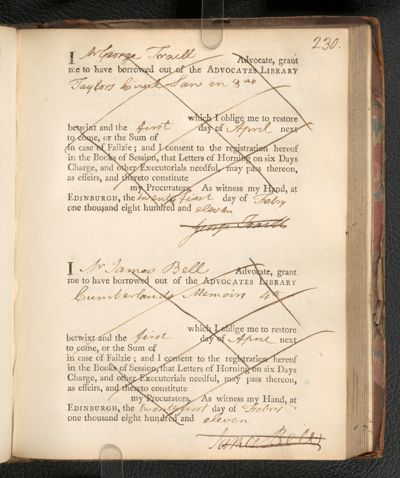 230.
I Mr George Traill Advocate, grant
me to have borrowed out of the ADVOCATES LIBRARY
Taylors Civil Law in 8vo
which I oblige me to restore
betwixt and the first day of April next
to come, or the Sum of
in case of Failzie; and I consent to the registration hereof
in the Books of Session, that Letters of Horning on six Days
Charge, and other Executorials needful, may pass thereon,
as effeirs, and thereto constitute
my Procurators. As witness my Hand, at
EDINBURGH, the twenty first day of Febry
one thousand eight hundred and eleven
George Traill
I Mr James Bell Advocate, grant
me to have borrowed out of the ADVOCATES LIBRARY
Cumberlands Memoirs 4to
which I oblige me to restore
betwixt and the first day of April next
to come, or the Sum of
in case of Failzie; and I consent to the registration hereof
in the Books of Session, that Letters of Horning on six Days
Charge, and other Executorials needful, may pass thereon,
as effeirs, and thereto constitute
my Procurators. As witness my Hand, at
EDINBURGH, the twenty first day of Febry
one thousand eight hundred and eleven
James Bell